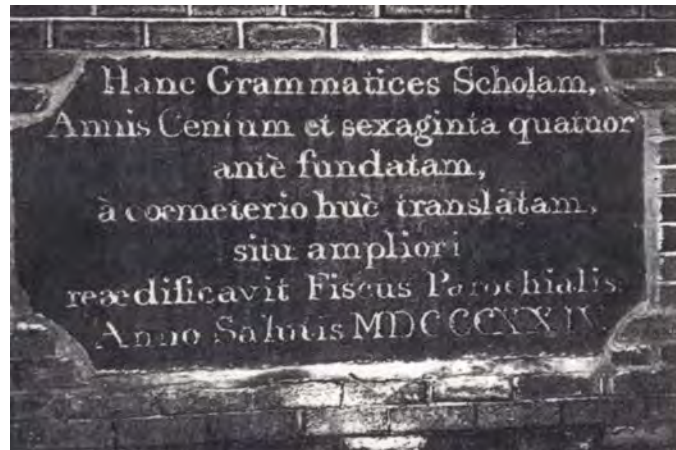 Hanc Grammatices Scholam,
Annis Centum et sexaginta quatuor
antè fundatam,
à coemeterio huc translatam,
situ ampliori
reædificavit Fiscus Parochialis.
Anno Salutis MDCCCXXIV.